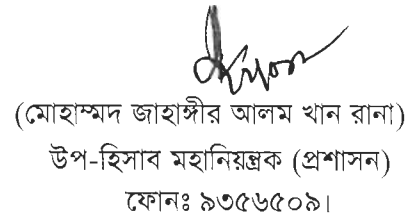 (মোহাম্মদ জাহাঙ্গীর আলম খান রানা)
উপ-হিসাব মহানিয়ন্ত্রক (প্রশাসন)
ফোনঃ ৯৩৫৬৫০৯।